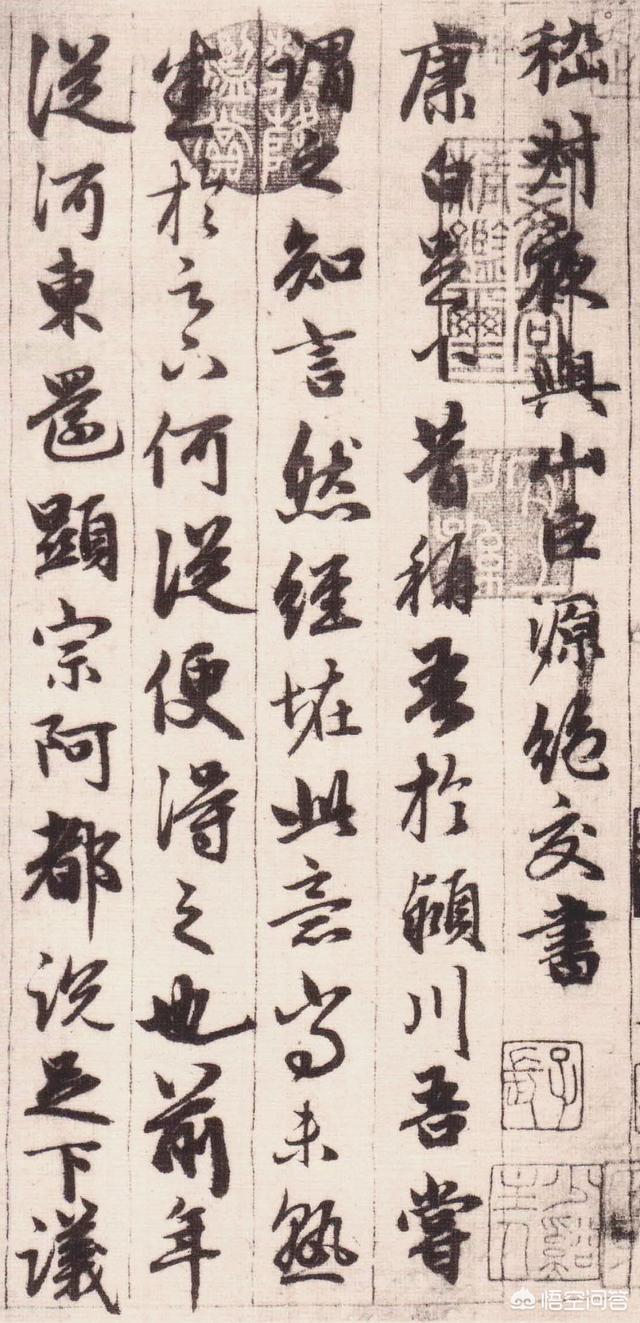 嵇叔夜與山巨源絕交書
康白足下昔稱吾於潁川吾嘗
謂之知言然經怪此意尚未熟
悉於足下何從便得之也前年
從河東還顯宗阿都說足下議
三希堂
精鑑璽
悟空问答